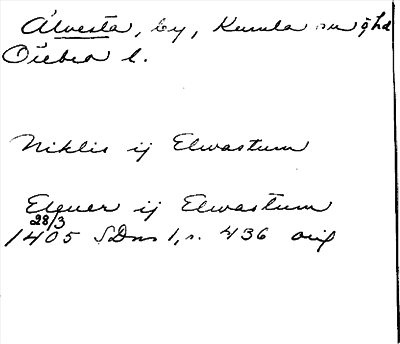 Älvesta, by, Kumla sn o hd
Örebro l.
Niklis ij Elwastum
Elguer ij Elwastum
28/3
1405 SDns 1, s. 436 orig